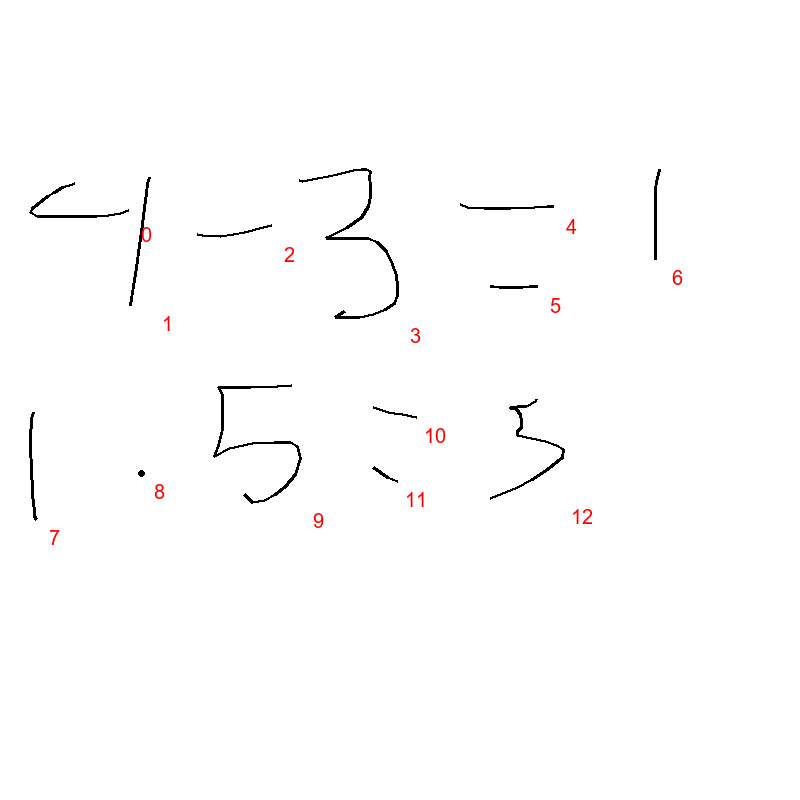 4 - 3 = 1
0 1 2 3 4 5 6
1 · 5 = 5
7 8 9 10 11 12